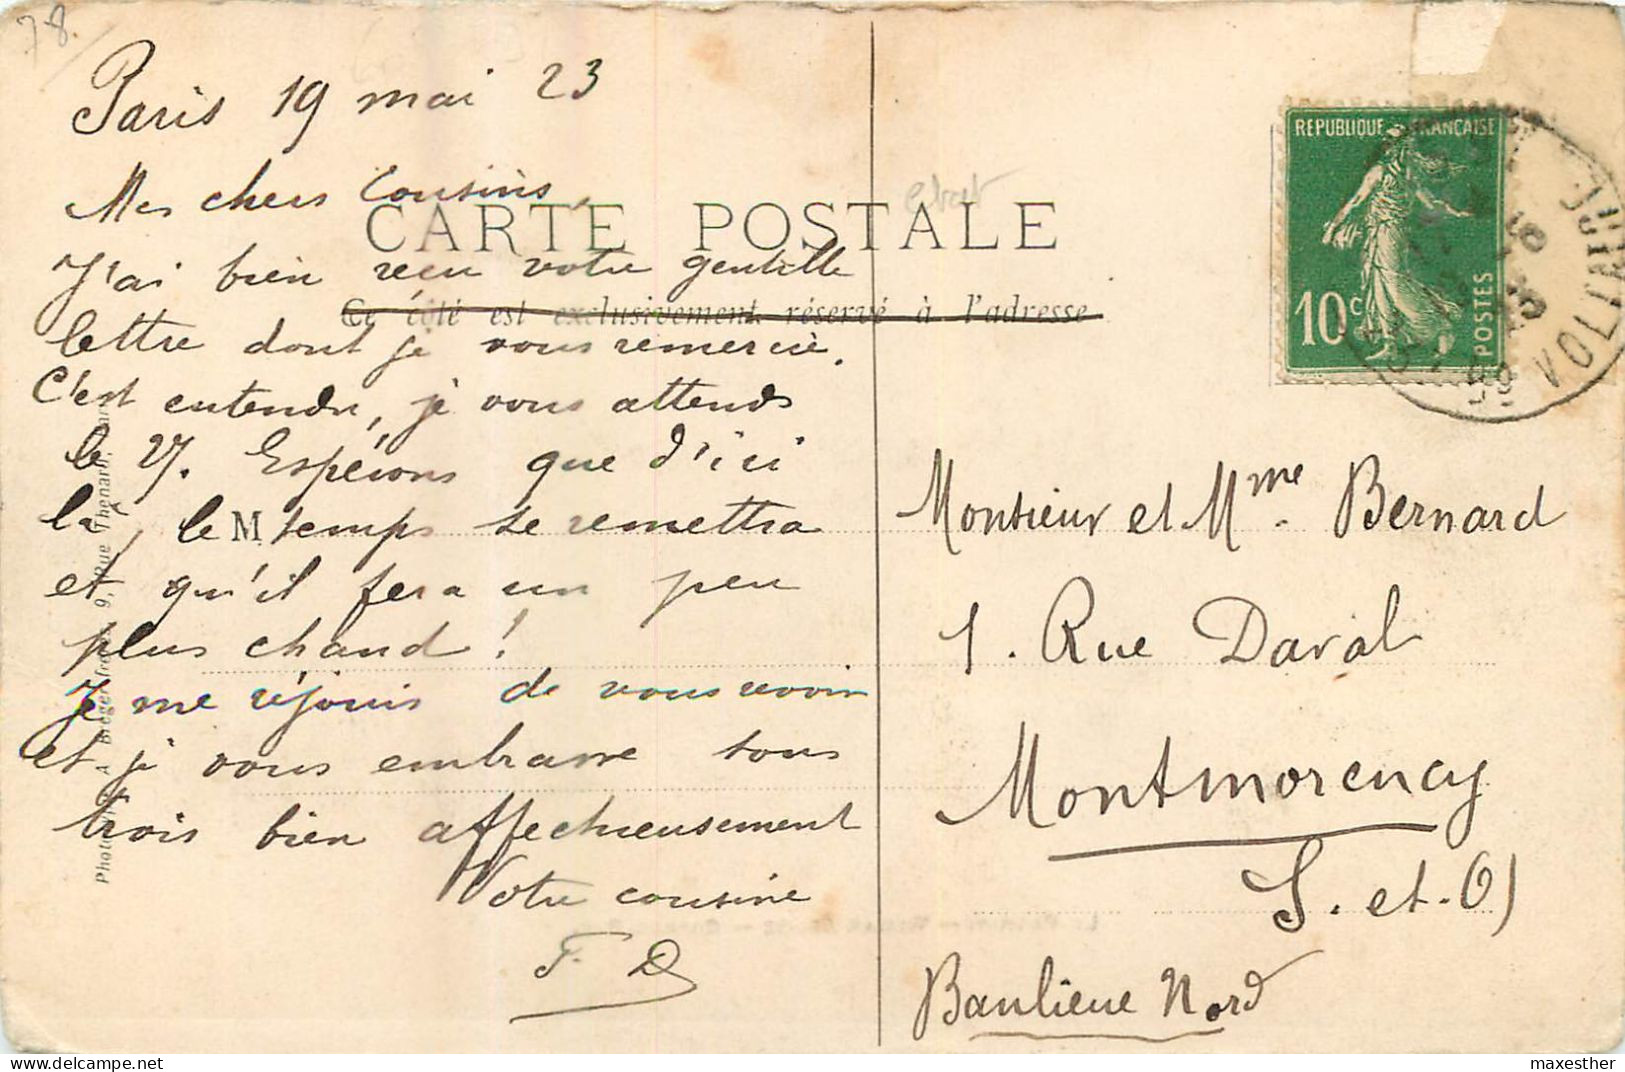 78.
Paris 19 mai 23
Mes chers Cousins,
CARTE POSTALE
J'ai bien reçu votre gentille
Ce côté est exclusivement réservé à l'adresse
lettre dont je vous remercie.
C'est entendu, je vous attends
le 27. Espérons que d'ici
là, le temps se remettra
M
et qu'il fera un peu
plus chaud !
Je me réjouis de vous revoir
et je vous embrasse tous
trois bien affectueusement
Votre cousine
F. D
REPUBLIQUE FRANÇAISE
10c POSTES
VOLTAIRE
Monsieur et Mme. Bernard
1. Rue Daval
Montmorency
S. et. O)
Banlieue Nord
9, Rue Thénard
maxesther